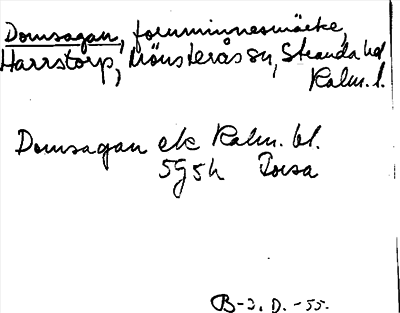 Domsagan, fornminnesmärke,
Harrstorp, Mönsterås sn, Stranda hd
Kalm. l.
Domsagan ek Kalm. bl.
5G5h
B-2. D. -55.